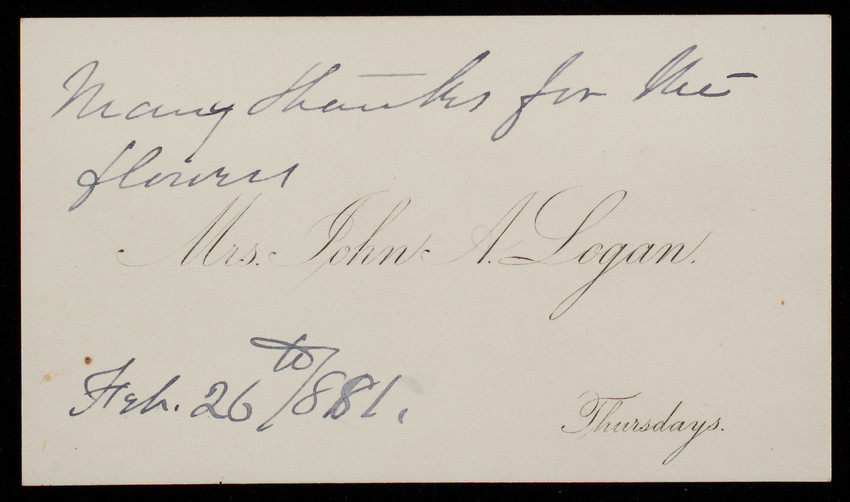 Many thanks for the
flowers
Mrs. John A. Logan.
Feb. 26th/881.
Thursdays.